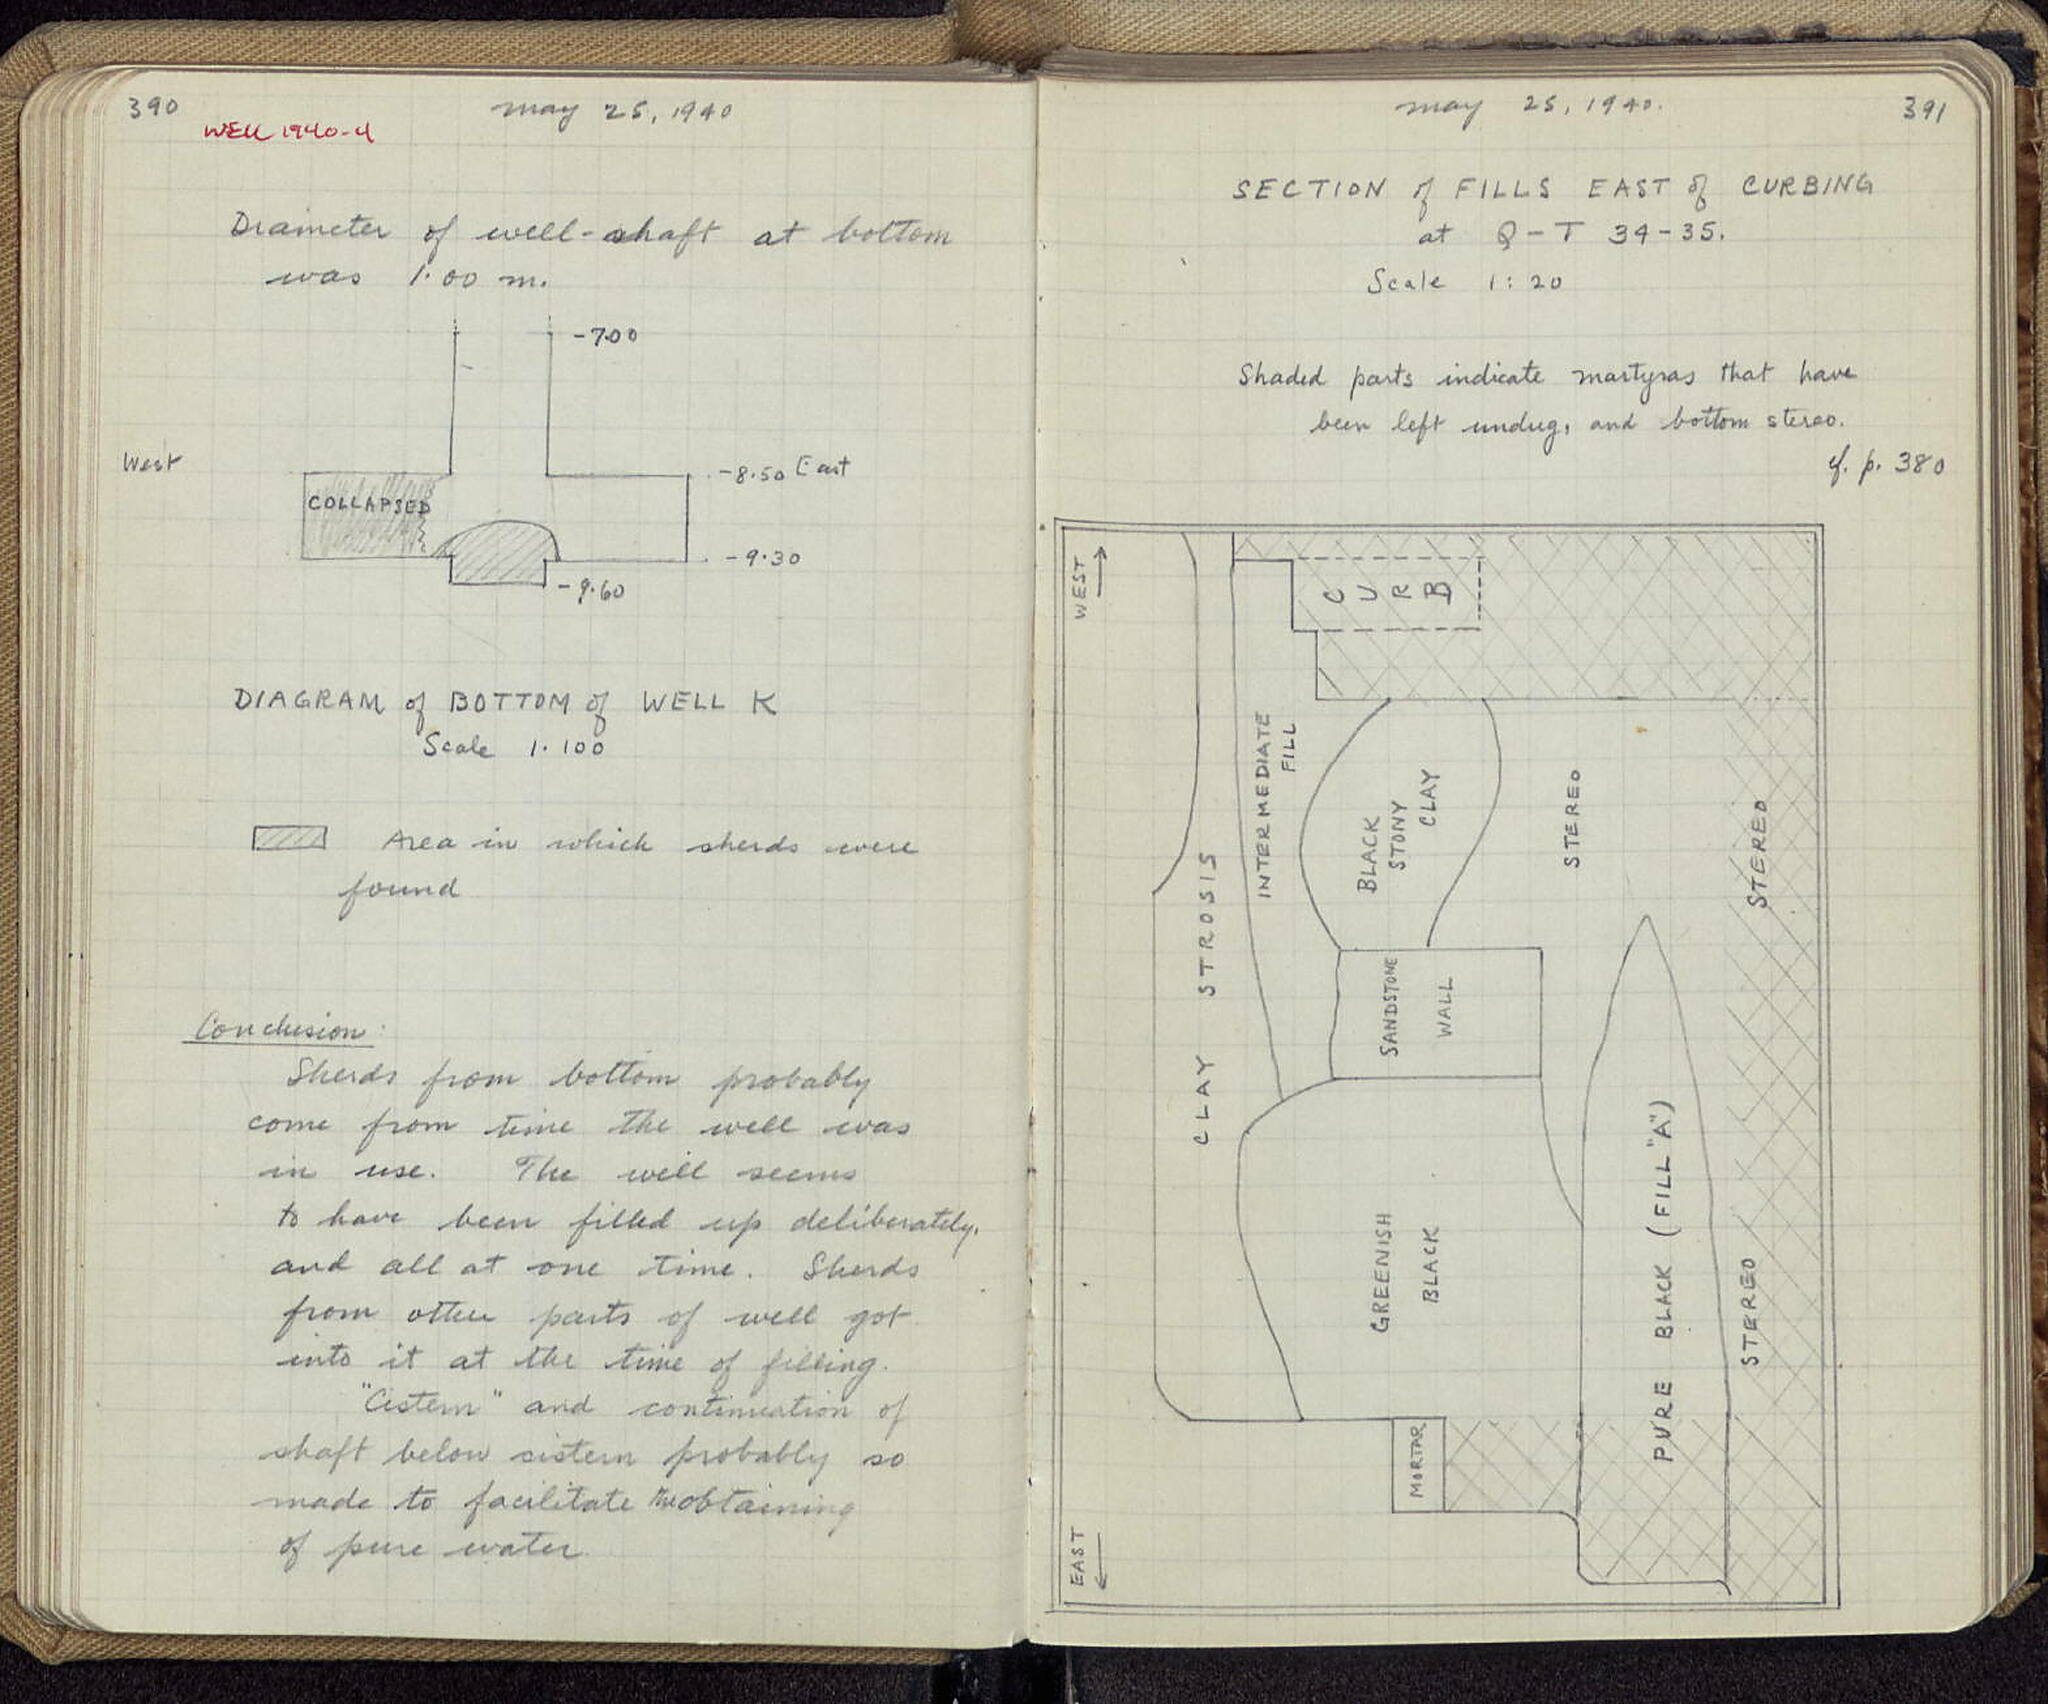 390
May 25, 1940
WELL 1940-4
Diameter of well-shaft at bottom
was 1.00 m.
-7.00
West
-8.50 East
COLLAPSED
-9.30
-9.60
DIAGRAM of BOTTOM of WELL K
Scale 1.100
Area in which sherds were
found
Conclusion:
Sherds from bottom probably
come from time the well was
in use. The well seems
to have been filled up deliberately,
and all at one time. Sherds
from other parts of well got
into it at the time of filling.
"Cistern" and continuation of
shaft below cistern probably so
made to facilitate the obtaining
of pure water
May 25, 1940.
391
SECTION of FILLS EAST of CURBING
at Q-T 34-35.
Scale 1:20
Shaded parts indicate martyras that have
been left undug, and bottom stereo.
cf. p. 380
WEST
CURB
INTERMEDIATE
FILL
BLACK
STONY
CLAY
STEREO
STEREO
CLAY STROSIS
SANDSTONE
WALL
GREENISH
BLACK
PURE BLACK (FILL "A")
STEREO
MORTAR
EAST